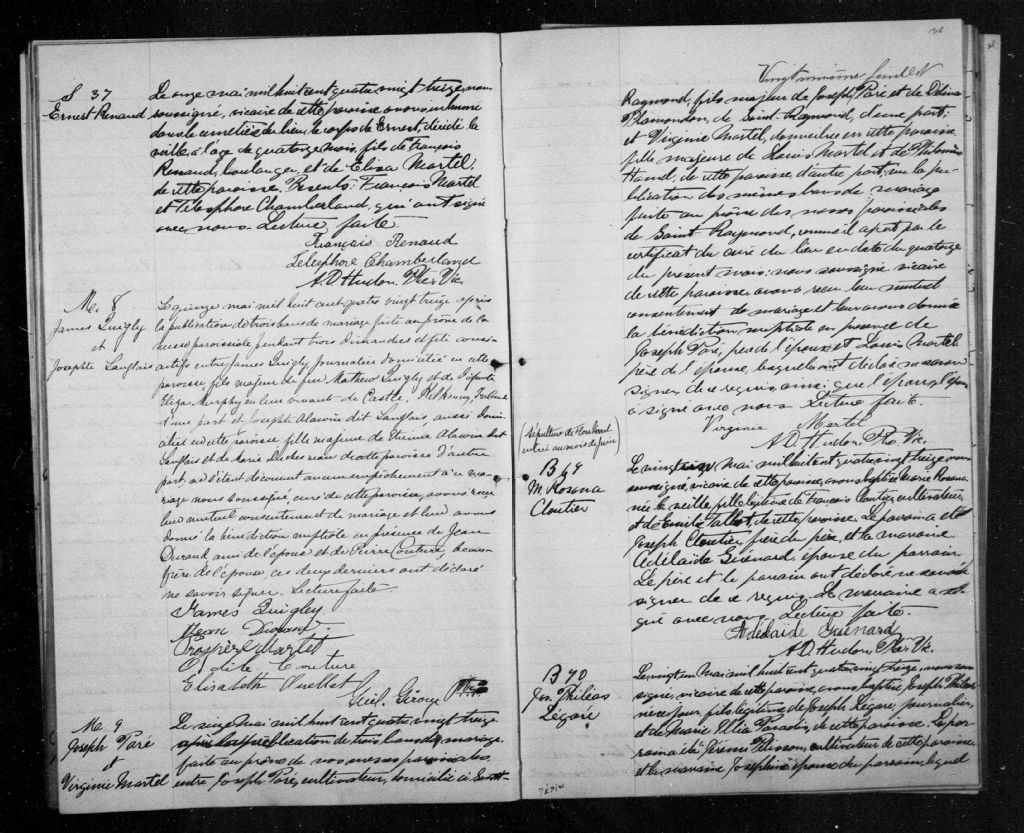 S 37
Ernest Renaud
Le onze mai mil huit cent quatre vingt treize, nous
soussigné, vicaire de cette paroisse, avons inhumé
dans le cimetière du lieu, le corps de Ernest, décédé la
veille, à l'age de quatorze mois, fils de François
Renaud, boulanger, et de Eliza Martel,
de cette paroisse. Présents: François Martel
et Télesphore Chamberland, qui ont signé
avec nous. Lecture faite.
François Renaud
Télesphore Chamberland
A. D. Hudon, Ptre Vic.
M. 8
James Quigly
et
Josephte Langlais
Le quinze mai mil huit cent quatre vingt treize après
la publication de trois bans de mariage faite au prône de la
messe paroissiale pendant trois dimanches et fête consé-
cutifs entre James Quigly Journalier domicilié en cette
paroisse fils majeur de feu Mathew Quigly et de
Eliza Murphy en leur vivant de Castle, Kilkenny, Irlande
d'une part et Joseph Alawin dit Langlais, aussi domi-
ciliée en cette paroisse fille majeure de Etienne Alawin dit
Langlais et de Marie de cette paroisse d'autre
part, ne s'étant découvert aucun empêchement à ce ma-
riage nous soussigné, curé de cette paroisse, avons reçu
leur mutuel consentement de mariage et leur avons
donné la bénédiction nuptiale en présence de Jean
Durand ami de l'époux et de Pierre Couture, beau-
frère de l'épouse, ces deux derniers ont déclaré
ne savoir signer. Lecture faite
James Quigley
Jean Durand
Prospère Martel
Couture
Elisabeth Ouellet
Guil. Giroux Ptre
M. 9
Joseph Paré
et
Virginie Martel
Le seize mai mil huit cent quatre vingt treize
après la publication de trois bans de mariage
faite au prône de nos messes paroissiales
entre Joseph Paré, cultivateur, domicilié à Saint
Vingt neuvième feuillet
Raymond, fils majeur de Joseph Paré et de
Plamondon, de Saint Raymond, d'une part;
et Virginie Martel, domiciliée en cette paroisse
fille majeure de Louis Martel et de Philomène
Hamel, de cette paroisse, d'autre part, vu la pu-
blication des mêmes bans de mariage
faite au prône des messes paroissiales
de Saint Raymond, comme il apert par le
certificat du curé du lieu en date du quatorze
du présent mois: nous soussigné vicaire
de cette paroisse, avons reçu leur mutuel
consentement de mariage et leur avons donné
la bénédiction nuptiale en présence de
Joseph Paré, père de l'époux et Louis Martel
père de l'épouse, lesquels ont déclaré ne savoir
signer, de ce requis, ainsi que l'époux, l'épouse
a signé avec nous. Lecture faite.
Virginie Martel
A. D. Hudon, Ptre Vic.
(Sépulture de
entrée au mois de juin)
B 69
M. Rosana
Cloutier
Le vingt mai mil huit cent quatre vingt treize, nous
soussigné, vicaire de cette paroisse, avons baptisé Marie Rosana
née la veille, fille légitime de François Cloutier, cultivateur,
et de Emilie Talbot, de cette paroisse. Le parrain a été
Joseph Cloutier, frère du père, et la marraine
Adélaïde Guénard, épouse du parrain
Le père et le parrain ont déclaré ne savoir
signer de ce requis. La marraine a si-
gné avec nous. Lecture faite.
Adélaïde Guénard
A. D. Hudon, Ptre Vic.
B 70
Jos. Philéas
Légaré
Le vingt un mai mil huit cent quatre vingt treize, nous sous-
signé, vicaire de cette paroisse, avons baptisé Joseph Philéas
né ce jour, fils légitime de Joseph Légaré, journalier,
et de Marie Paradis, de cette paroisse. Le par-
rain a été Jérémie Pélisson, cultivateur de cette paroisse,
et la marraine Josephine épouse du parrain, lequel